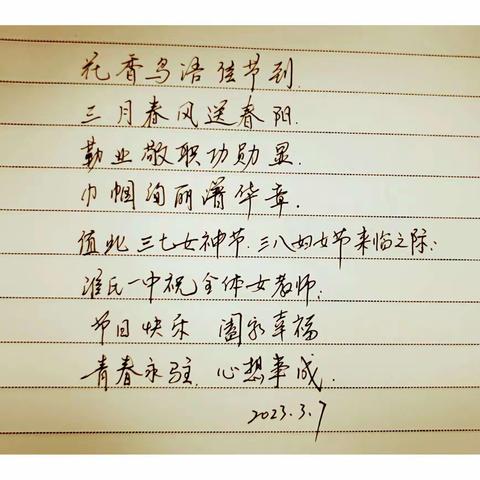 花香鸟语佳节到.
三月春风送春阳.
勤业敬职功勋显.
巾帼绚丽谱华章.
值此三七女神节.三八妇女节来临之际:
淮氏一中祝全体女教师:
节日快乐 阖家幸福
青春永驻.心想事成.
2023.3.7